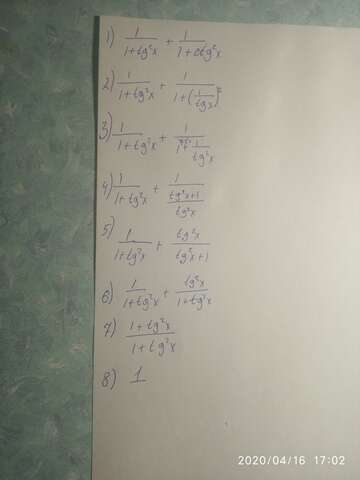 1) 1/(1+tg²x) + 1/(1+ctg²x)
2) 1/(1+tg²x) + 1/(1+(1/tgx)²)
3) 1/(1+tg²x) + 1/(1+1/tg²x)
4) 1/(1+tg²x) + 1/((tg²x+1)/tg²x)
5) 1/(1+tg²x) + tg²x/(tg²x+1)
6) 1/(1+tg²x) + tg²x/(1+tg²x)
7) (1+tg²x)/(1+tg²x)
8) 1
2020/04/16 17:02